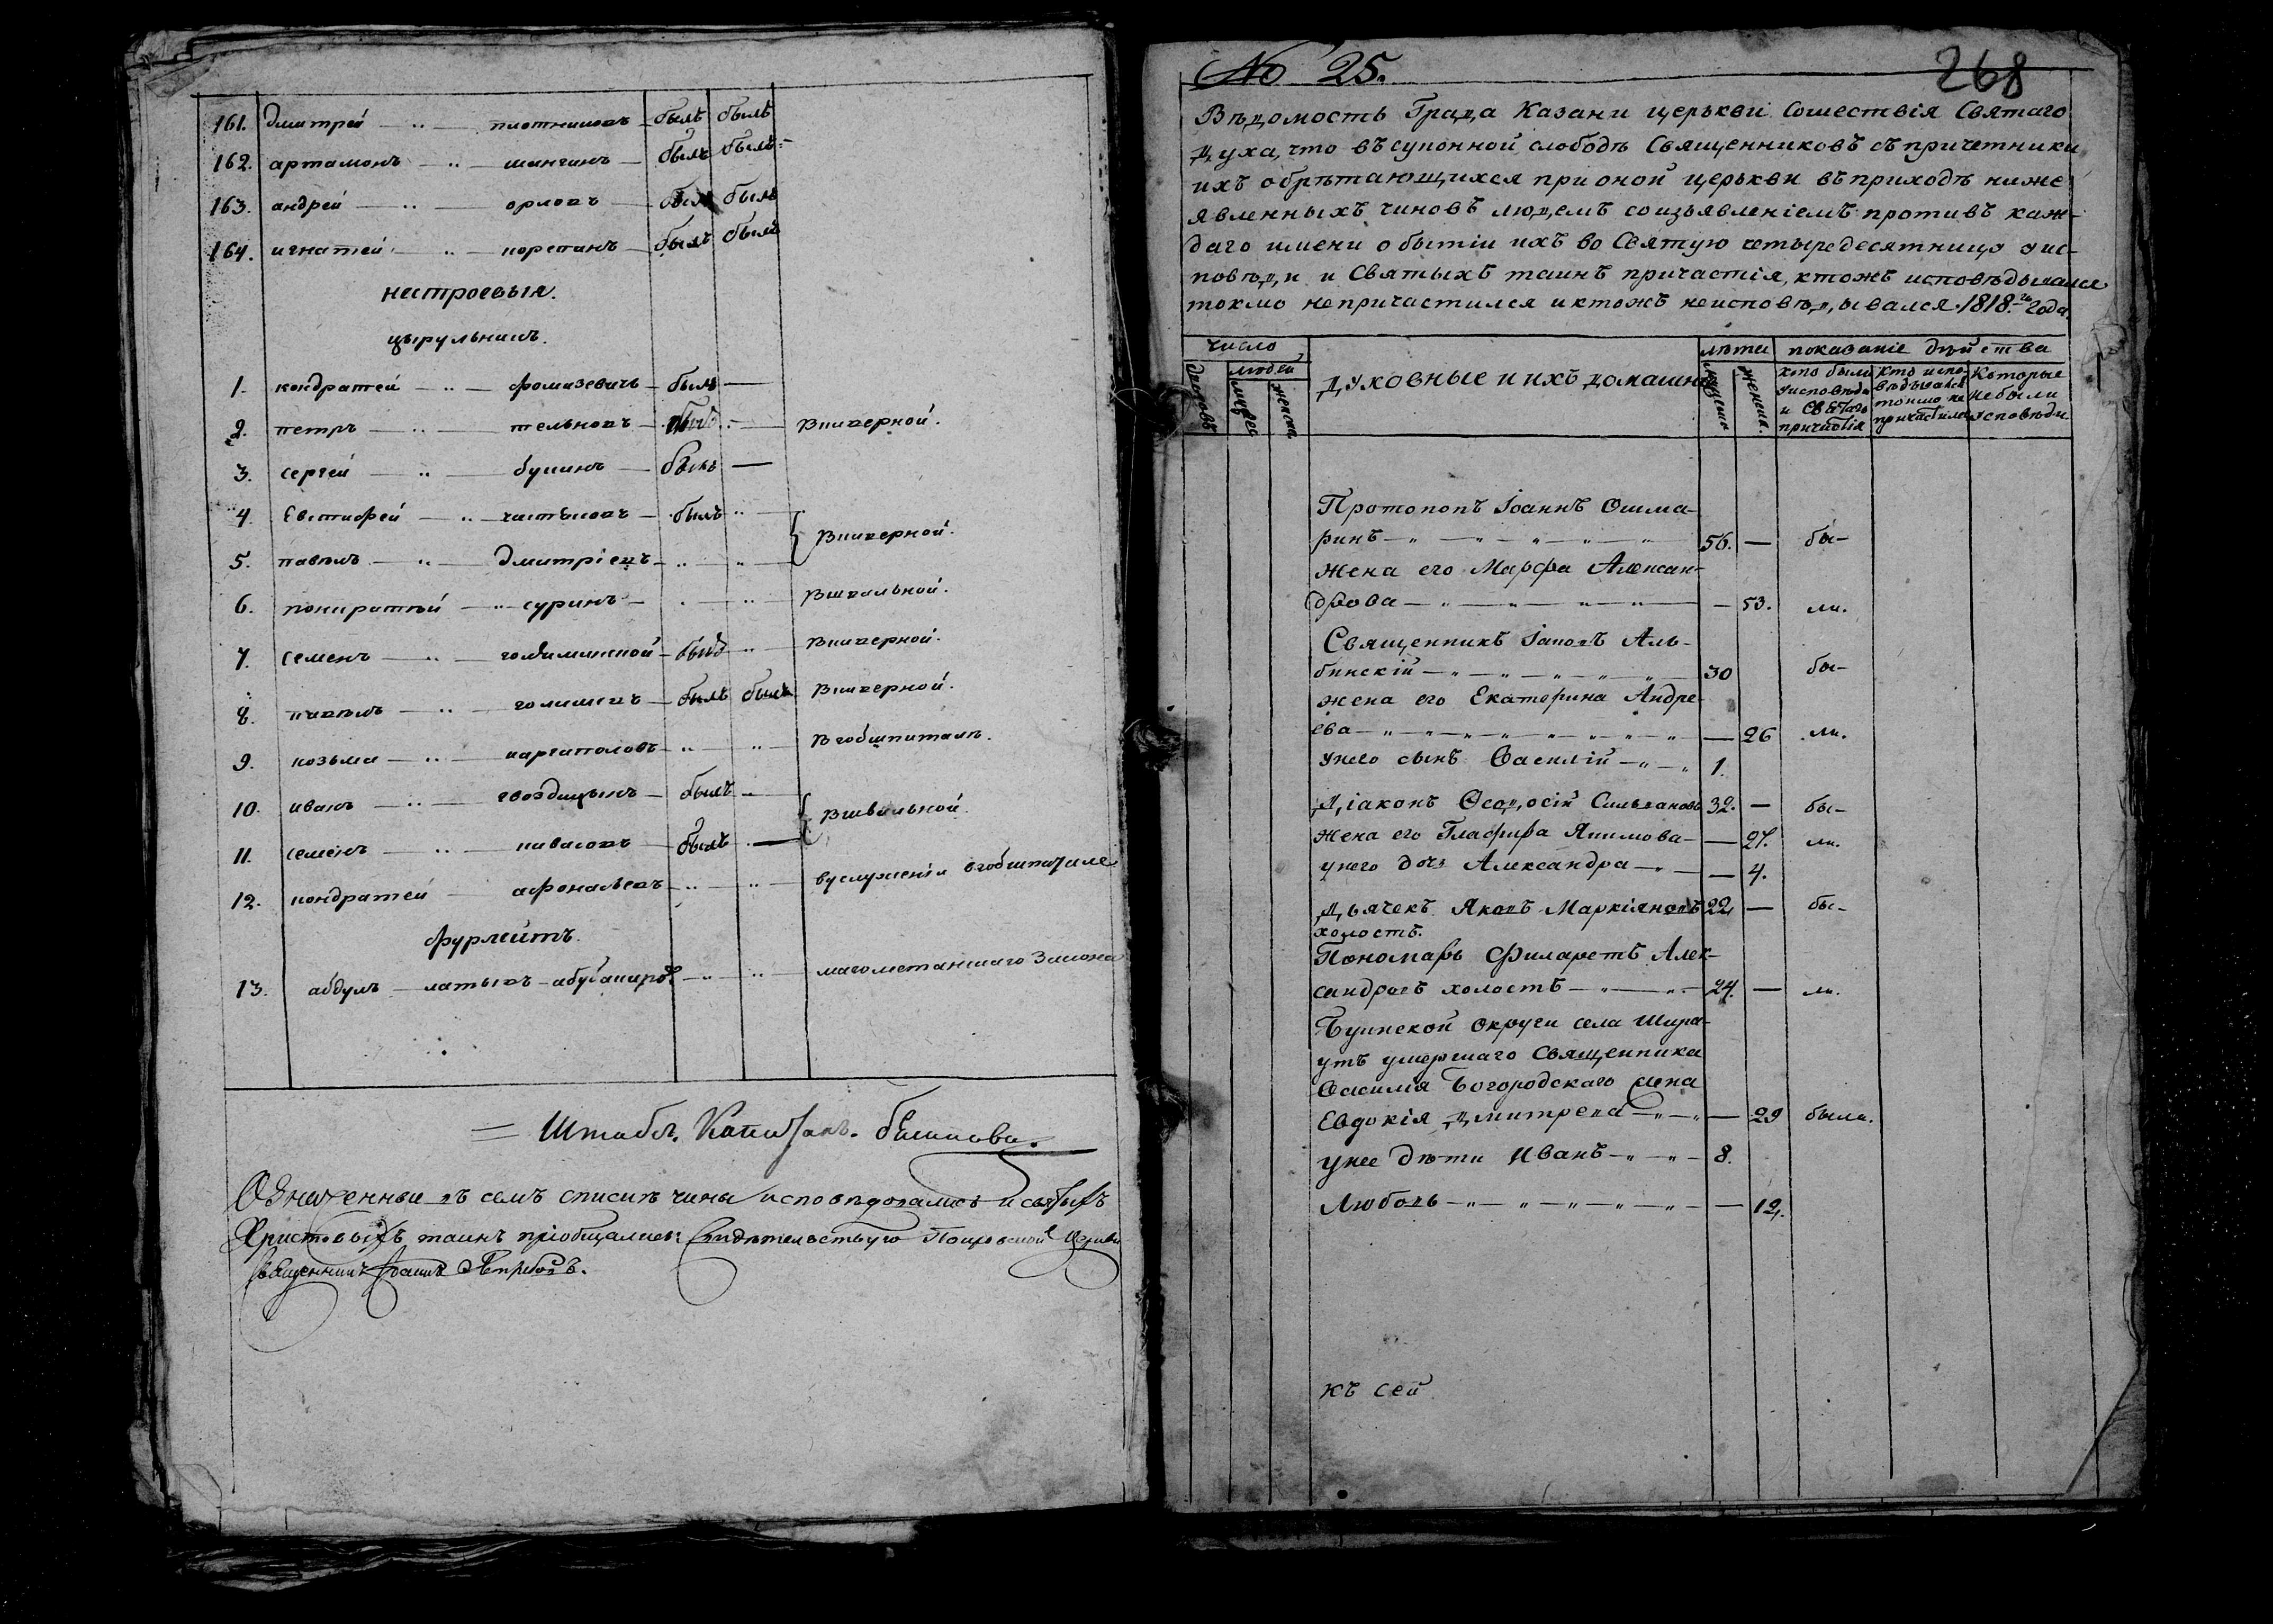 161. дмитрей — „ — плотниковъ — былъ былъ
162. артамонъ — „ — шангинъ — былъ былъ
163. андрей — „ — орловъ — былъ былъ
164. игнатей — „ — корепанъ — былъ былъ
нестроевыя.
цырульникъ.
1. кондратей — „ — фомазевичъ — былъ —
2. петръ — „ — тельновъ — былъ — Вшверной.
3. сергей — „ — букинъ — былъ —
4. Евстифей — „ — — былъ „
5. павелъ — „ — Дмитріевъ — „ „ Вшверной.
6. — „ — суринъ — „ „ Вшвальной.
7. семенъ — „ — — былъ „ Вшверной.
8. павелъ — „ — голишевъ — былъ былъ Вшверной.
9. козьма — „ — каргаполовъ — „ „ Вгобшпитале.
10. иванъ — „ — гвоздицынъ — былъ „
11. семенъ — „ — — былъ — Вшвальной.
12. кондратей — афонасьевъ — „ „ вуслуженіи вгобшпитале
фурлейтъ.
13. абдулъ — латыпъ — абубакировъ — „ „ магометанскаго Закона
Штабсъ Капитанъ
Означенные въ семъ списке чины исповѣдовались и святыхъ
Христовыхъ таинъ пріобщались: Свидѣтельствую Покровской Церкви
священникъ Іоаннъ
№ 25. 268
Вѣдомость Града Казани церькви Сошествія Святаго
Духа, что въ суконной слободѣ Священниковъ съ причетники
ихъ обрѣтающихся при оной церькви въ приходѣ ниже
явленныхъ чиновъ людемъ со изъявленіемъ противъ каж-
даго имени о бытіи ихъ во Святую четыредесятницу у ис-
повѣди и Святыхъ таинъ причастія, ктожъ исповѣдывался
токмо непричастился и ктожъ неисповѣдывался 1818го года.
число
людей
дворовъ
мужес
женска
Духовные и ихъ домашніе
лѣта
мужеска
женска
показаніе дѣйства
кто были уисповѣди и Святаго причастія
Кто испо-вѣдывался токмо не причастился
Которые небыли уисповѣди
Протопопъ Іоаннъ Ошма-
ринъ — „ — „ — „ — 56. — бы-
жена его Марфа Алексан-
дрова — „ — „ — „ — — 53. ли.
Священникъ Іаковъ Аль-
бинскій — „ — „ — „ — 30 бы-
жена его Екатерина Андре-
ева — „ — „ — „ — „ — 26 ли.
унего сынъ Василій — „ — „ 1.
Діаконъ Ѳеодосій Сильвановъ 32. — бы-
жена его Глафира Якимова — — 27. ли.
унего дочь Александра — „ — — 4.
Дьячекъ Яковъ Маркіяновъ 22 — бы-
холостъ.
Пономарь Филаретъ Алек-
сандровъ холостъ — „ — „ — 24. — ли.
Буинской округи села Шира-
утъ умершаго Священника
Василія Богородскаго жена
Евдокія Дмитрева — „ — „ — 29 была.
у нее дѣти Иванъ — „ — „ — 8.
Любовь — „ — „ — „ — „ — — 12.
къ сей